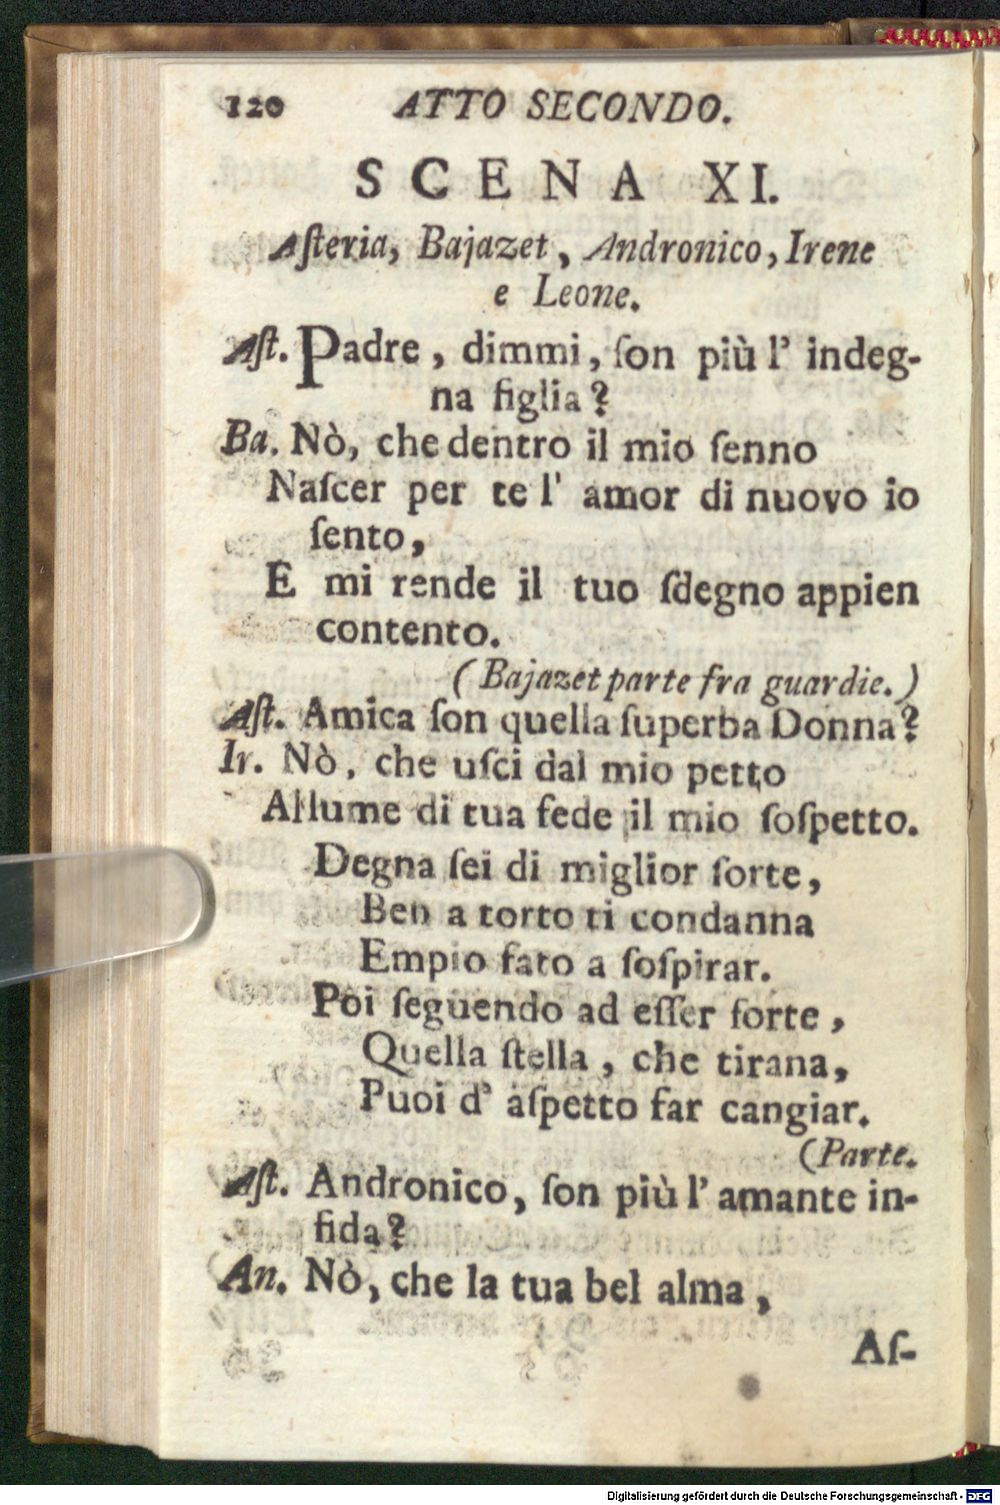 120 ATTO SECONDO.
SCENA XI.
Aſteria, Bajazet, Andronico, Irene
e Leone.
Aſt. Padre, dimmi, ſon più l' indeg-
na figlia?
Ba. Nò, che dentro il mio ſenno
Naſcer per te l' amor di nuovo io
ſento,
E mi rende il tuo ſdegno appien
contento.
(Bajazet parte fra guardie.)
Aſt. Amica ſon quella ſuperba Donna?
Ir. Nò, che uſci dal mio petto
Al lume di tua fede il mio ſoſpetto.
Degna ſei di miglior ſorte,
Ben a torto ti condanna
Empio fato a ſoſpirar.
Poi ſeguendo ad eſſer forte,
Quella ſtella, che tirana,
Puoi d' aſpetto far cangiar.
(Parte.
Aſt. Andronico, ſon più l' amante in-
fida?
An. Nò, che la tua bel alma,
Aſ-
Digitalisierung gefördert durch die Deutsche Forschungsgemeinschaft - DFG